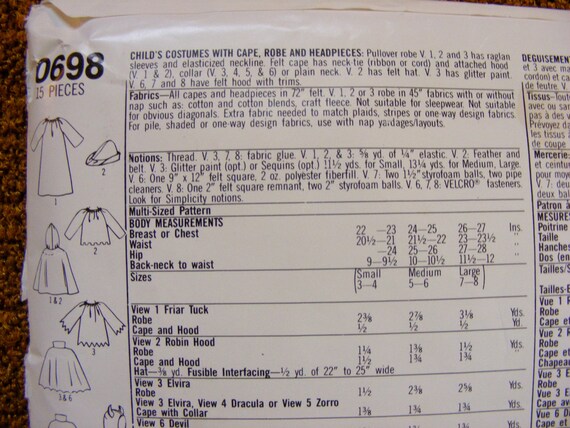 0698
15 PIECES
1
2
2
1 & 2
3
3 & 6
CHILD'S COSTUMES WITH CAPE, ROBE AND HEADPIECES: Pullover robe V. 1, 2 and 3 has raglan
sleeves and elasticized neckline. Felt cape has neck-tie (ribbon or cord) and attached hood
(V 1 & 2), collar (V 3, 4, 5, & 6) or plain neck. V 2 has felt hat. V 3 has glitter paint.
V 6, 7 and 8 have felt hood with trims.
Fabrics—All capes and headpieces in 72" felt. V 1, 2 or 3 robe in 45" fabrics with or without
nap such as: cotton and cotton blends, craft fleece. Not suitable for sleepwear. Not suitable
for obvious diagonals. Extra fabric needed to match plaids, stripes or one-way design fabrics.
For pile, shaded or one-way design fabrics, use with nap yardages/layouts.
Notions: Thread. V. 3, 7, 8: fabric glue. V. 1, 2, & 3: ⅝ yd. of ¼" elastic. V 2: Feather and
belt. V 3: Glitter paint (opt.) or Sequins (opt.) 11½ yds. for Small, 13¼ yds. for Medium, Large.
V 6: One 9" x 12" felt square, 2 oz. polyester fiberfil. V 7: Two 1½" styrofoam balls, two pipe
cleaners. V. 8: One 2" felt square remnant, two 2" styrofoam balls. V 6, 7, 8: VELCRO® fasteners.
Look for Simplicity notions.
Multi-Sized Pattern
BODY MEASUREMENTS
Breast or Chest 22 —23 24—25 26—27 Ins.
Waist 20½—21 21½—22 23—23½ "
Hip —24 25—26 27—28 "
Back-neck to waist 9—9½ 10—10½ 11½—12 "
Sizes Small Medium Large
3—4 5—6 7—8
View 1 Friar Tuck
Robe 2⅜ 2⅞ 3⅛ Yds.
Cape and Hood ½ ½ ½ Yd.
View 2 Robin Hood
Robe 1¼ 1⅜ 1½ Yds.
Cape and Hood 1½ 1¾ 1¾ "
Hat—⅜ yd. Fusible Interfacing—½ yd. of 22" to 25" wide
View 3 Elvira
Robe 1½ 2⅜ 2⅝ Yds.
View 3 Elvira, View 4 Dracula or View 5 Zorro
Cape with Collar 1⅜ 1¾ 1¾ Yds.
View 6 Devil
DEGUISEMEN
et 3 avec ma
cordon) et ca
de feutre. V.
Tissus—Tout
avec ou san
pas à des v
Prévoyez da
les tissus
à des
Mercerie
et ceintur
V 7: deu
deux
Patron à
MESURES
Poitrine
Taille
Hanches
Dos (en
Tailles/S
Tailles-E
Vue 1 F
Robe
Cape et
Vue 2 R
Robe
Cape et
Chapeau
Vue 3 E
Robe
Vue 3 E
Cape av
Vue 6 D